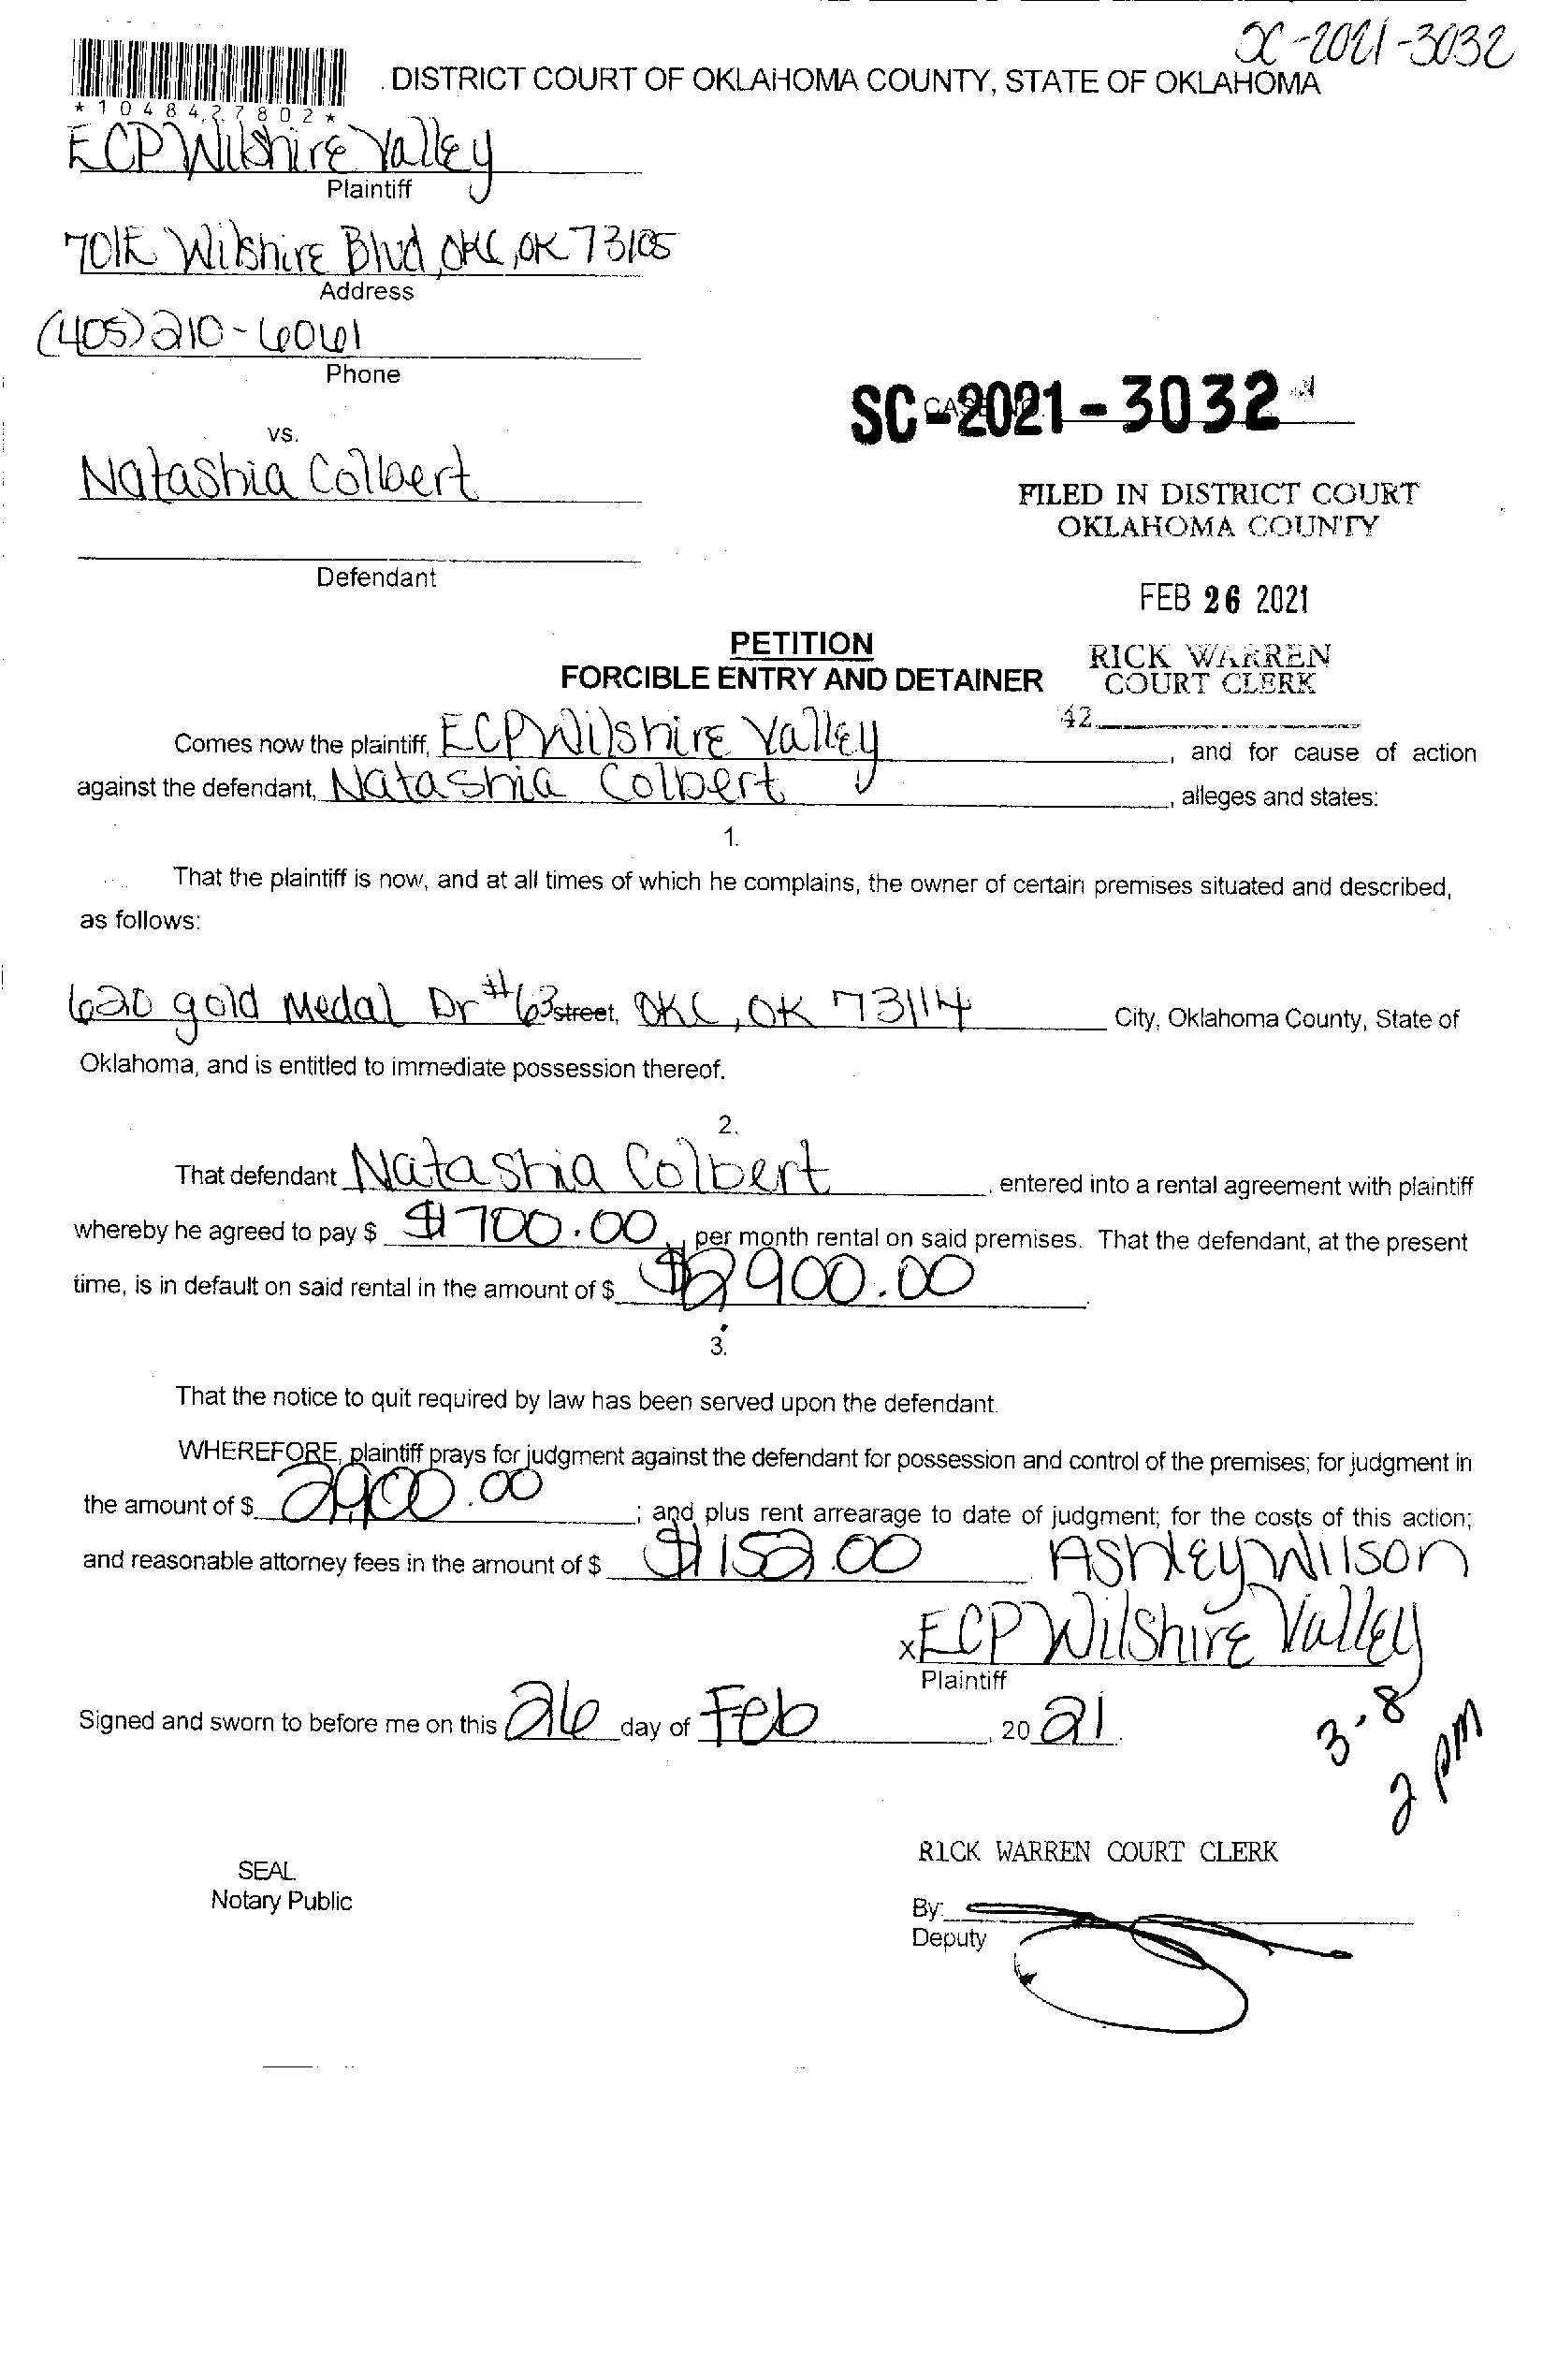 SC-2021-3032
DISTRICT COURT OF OKLAHOMA COUNTY, STATE OF OKLAHOMA
*1048427802*
ECP Wilshire Valley
Plaintiff
701 E Wilshire Blvd, OKC, OK 73105
Address
(405) 210-6061
Phone
SC-2021-3032
vs.
Natashia Colbert
FILED IN DISTRICT COURT
OKLAHOMA COUNTY
Defendant
FEB 26 2021
PETITION
RICK WARREN
FORCIBLE ENTRY AND DETAINER
COURT CLERK
42
Comes now the plaintiff, ECP Wilshire Valley, and for cause of action
against the defendant, Natashia Colbert, alleges and states:
1.
That the plaintiff is now, and at all times of which he complains, the owner of certain premises situated and described,
as follows:
620 gold Medal Dr #63 street, OKC, OK 73114 City, Oklahoma County, State of
Oklahoma, and is entitled to immediate possession thereof.
2.
That defendant Natashia Colbert, entered into a rental agreement with plaintiff
whereby he agreed to pay $ $700.00 per month rental on said premises. That the defendant, at the present
time, is in default on said rental in the amount of $ $2,900.00.
3.
That the notice to quit required by law has been served upon the defendant.
WHEREFORE, plaintiff prays for judgment against the defendant for possession and control of the premises; for judgment in
the amount of $ 2,900.00; and plus rent arrearage to date of judgment; for the costs of this action;
and reasonable attorney fees in the amount of $ $152.00. Ashley Wilson
x ECP Wilshire Valley
Plaintiff
Signed and sworn to before me on this 26 day of Feb, 2021.
3-8
2 pm
RICK WARREN COURT CLERK
SEAL
Notary Public
By:
Deputy